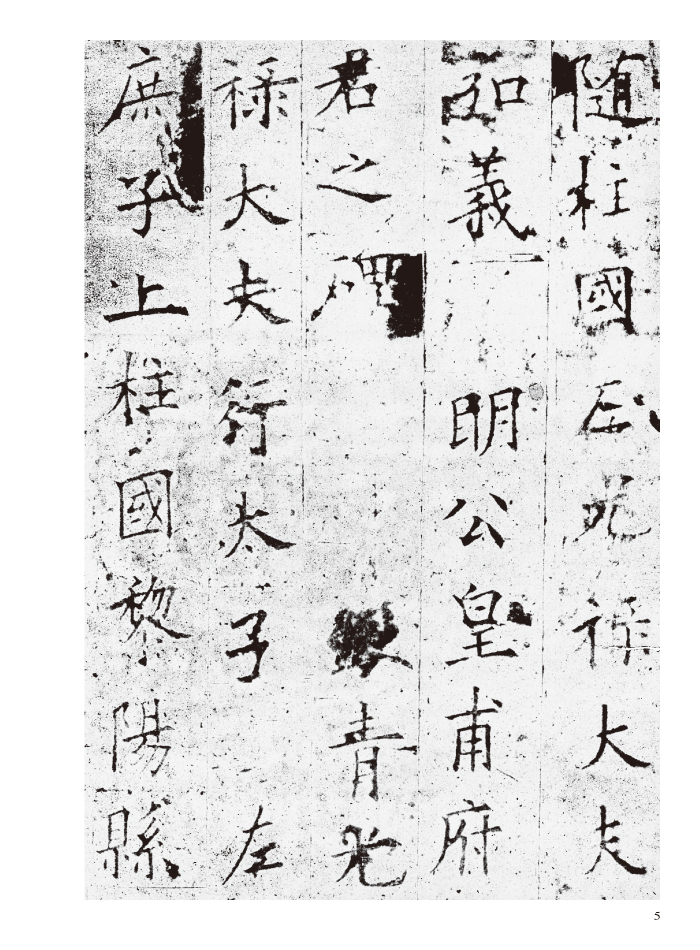 随柱國左光祿大夫
弘義明公皇甫府
君之碑 銀青光
祿大夫行太子左
庶子上柱國黎陽縣
5